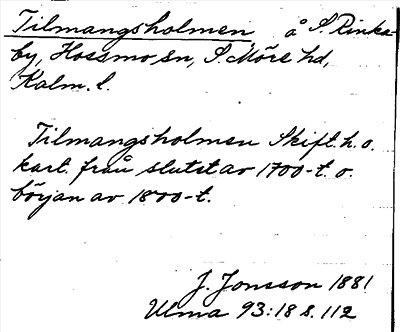 Tilmangsholmen å S. Rinka-
by, Hossmo sn, S. Möre hd,
Kalm. l.
Tilmangsholmen Skift. h. o.
kart. från slutet av 1700-t. o.
början av 1800-t.
J. Jonsson 1881
Ulma 93:18 s. 112